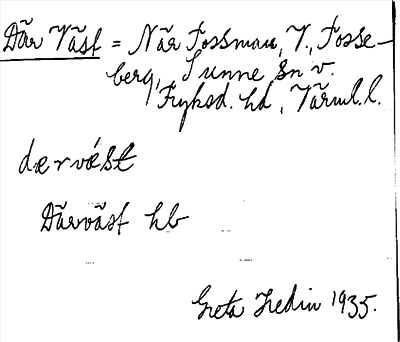 Där Väst = När Fossman, V., Fosse-
berg, Sunne sn v.
Fryksd. hd, Värml. l.
dærvæst
Därväst hb
Greta Hedin 1935.